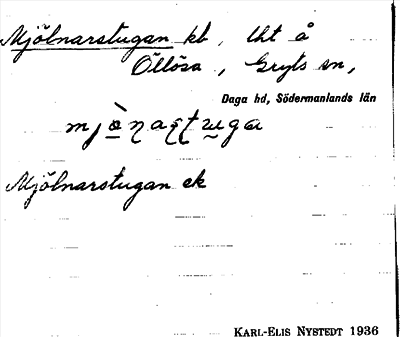 Mjölnarstugan kb, tht å
Öllösa, Gryts sn,
Daga hd, Södermanlands län
Mjölnarstugan ek
KARL-ELIS NYSTEDT 1936